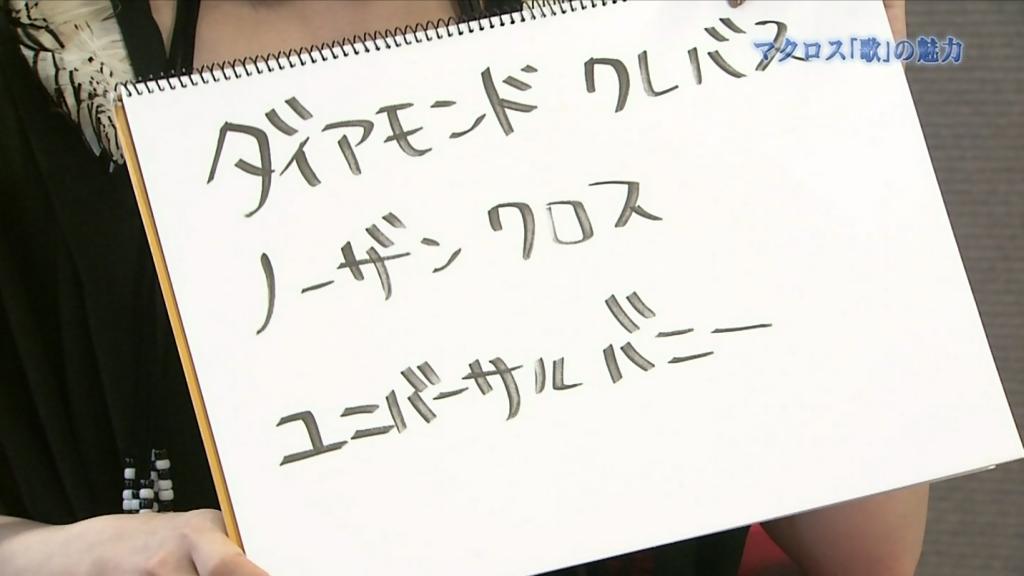 マクロス「歌」の魅力
ダイアモンド クレバス
ノーザンクロス
ユニバーサル バニー